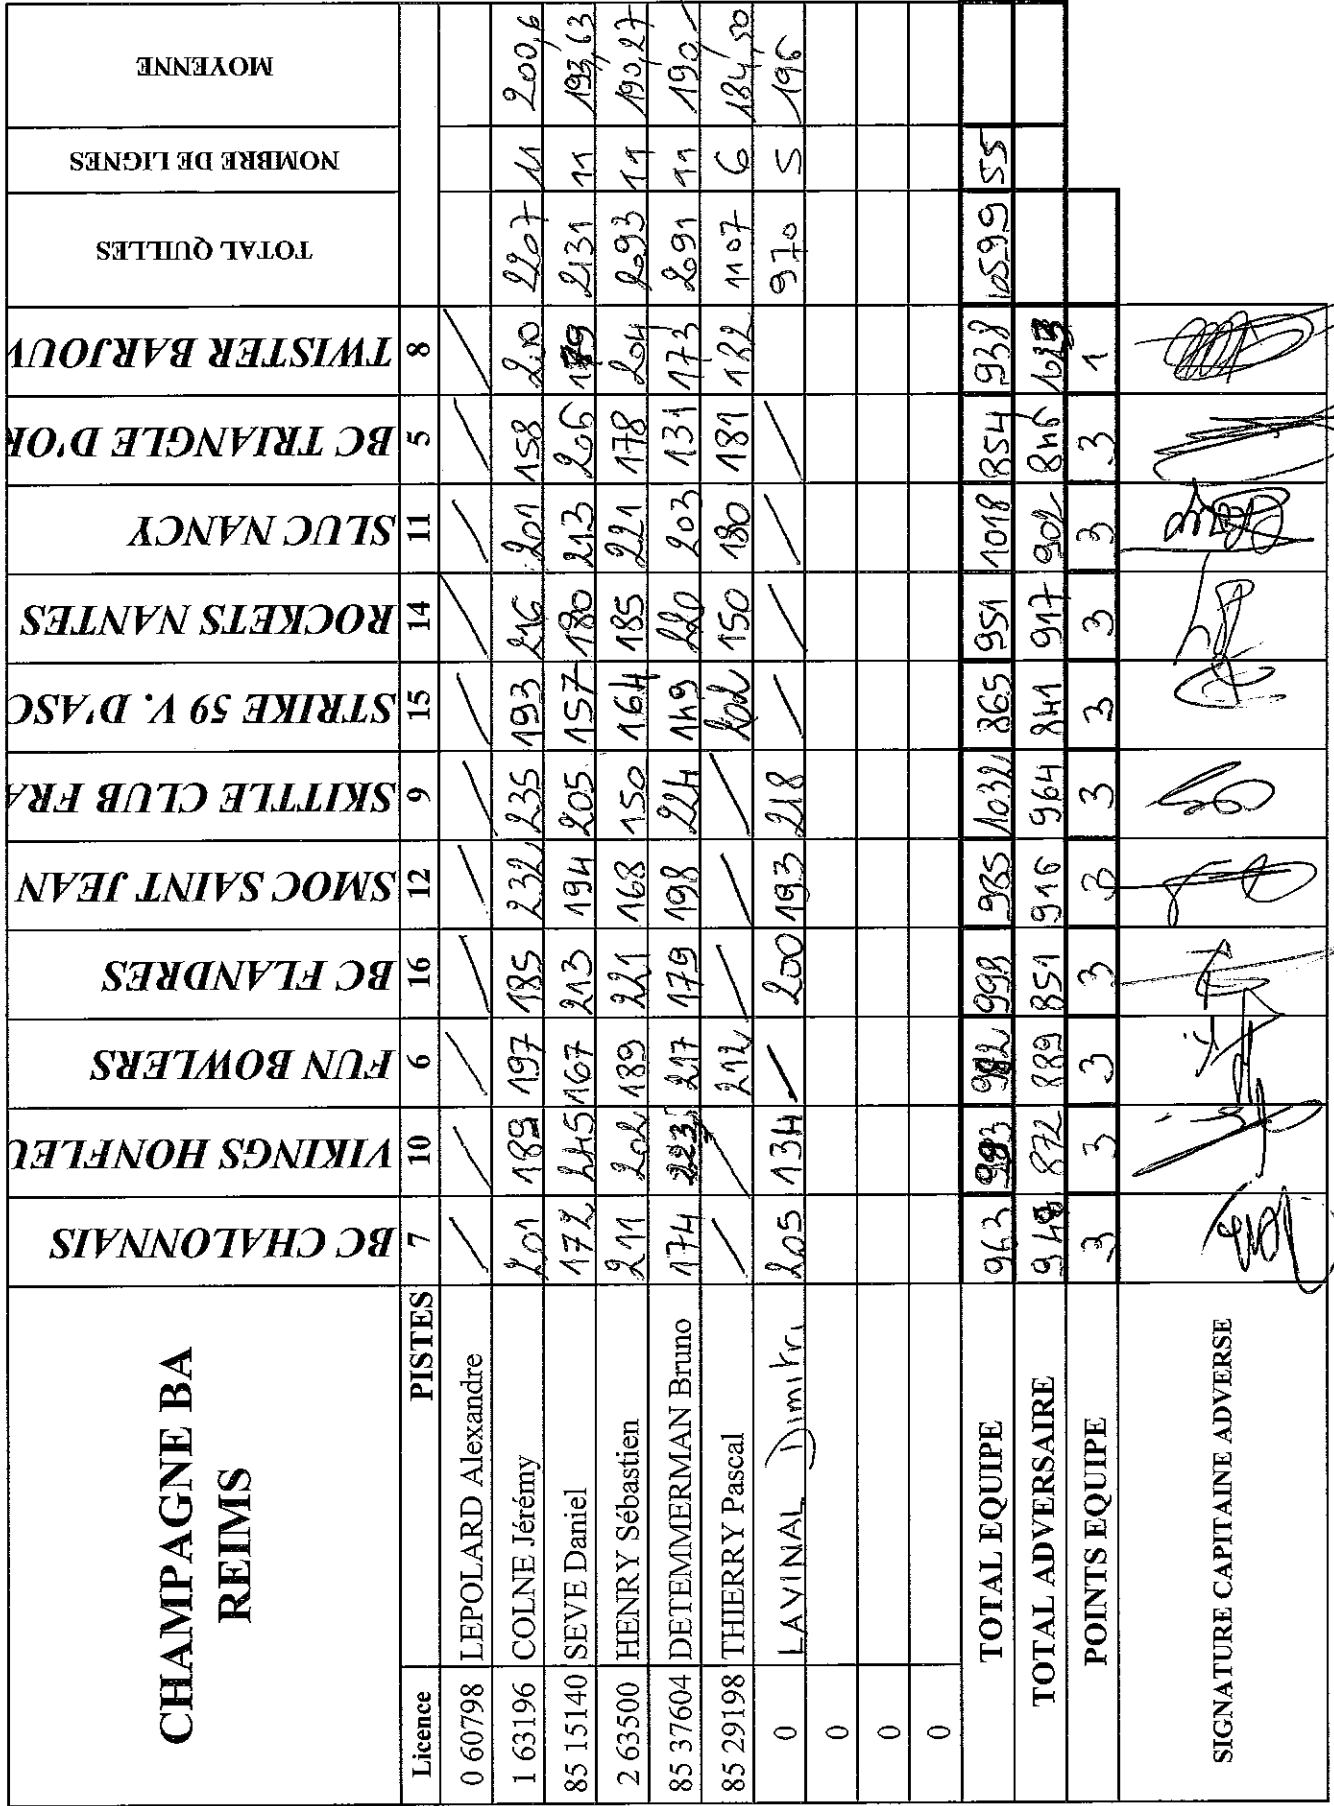 CHAMPAGNE BA
REIMS
BC CHALONNAIS
VIKINGS HONFLEU
FUN BOWLERS
BC FLANDRES
SMOC SAINT JEAN
SKITTLE CLUB FRA
STRIKE 59 V. D'ASC
ROCKETS NANTES
SLUC NANCY
BC TRIANGLE D'OR
TWISTER BARJOUV
TOTAL QUILLES
NOMBRE DE LIGNES
MOYENNE
Licence PISTES 7 10 6 16 12 9 15 14 11 5 8
0 60798 LEPOLARD Alexandre / / / / / / / / / / /
1 63196 COLNE Jérémy 201 189 197 185 232 235 193 216 201 158 200 2207 11 200,6
85 15140 SEVE Daniel 172 245 167 213 194 205 157 180 213 206 179 2131 11 193,63
2 63500 HENRY Sébastien 211 202 189 221 168 150 164 185 221 178 204 2093 11 190,27
85 37604 DETEMMERMAN Bruno 174 223 217 179 198 224 149 220 203 131 173 2091 11 190,-
85 29198 THIERRY Pascal / / 212 / / / 202 150 180 181 182 1107 6 184,50
0 LAVINAL Dimitri 205 134 / 200 193 218 / / / / 970 5 196
0
0
0
TOTAL EQUIPE 963 993 982 998 985 1032 865 951 1018 854 938 10599 55
TOTAL ADVERSAIRE 872 889 851 916 964 841 917 902 846
POINTS EQUIPE 3 3 3 3 3 3 3 3 3 3 1
SIGNATURE CAPITAINE ADVERSE